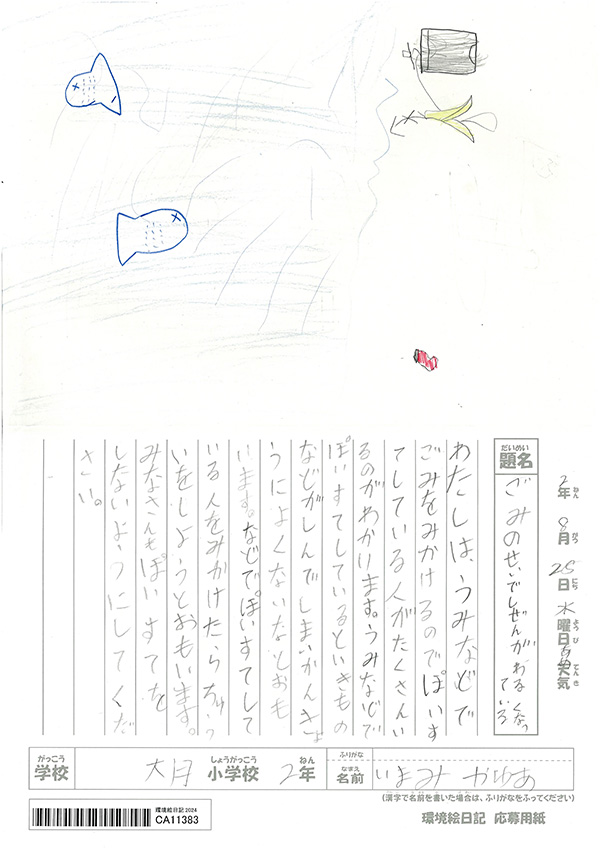 2年 8月 28日 水曜日 天気
ねん がつ にち ようび てんき
題名
だいめい
ごみのせいでしぜんがわるくなっ
ている
わたしは、うみなどで
ごみをみかけるのでぽいす
てしている人がたくさんい
るのがわかります。うみなどで
ぽいすてしているといきもの
などがしんでしまいかんきょ
うによくないなとおも
います。などでぽいすてして
いる人をみかけたらちゅう
いをしようとおもいます。
みなさんもぽいすてを
しないようにしてくだ
さい。
がっこう しょうがっこう ねん ふりがな
学校 大月 小学校 2年 名前
なまえ
(漢字で名前を書いた場合は、ふりがなをふってください)
環境絵日記2024
CA11383
環境絵日記 応募用紙